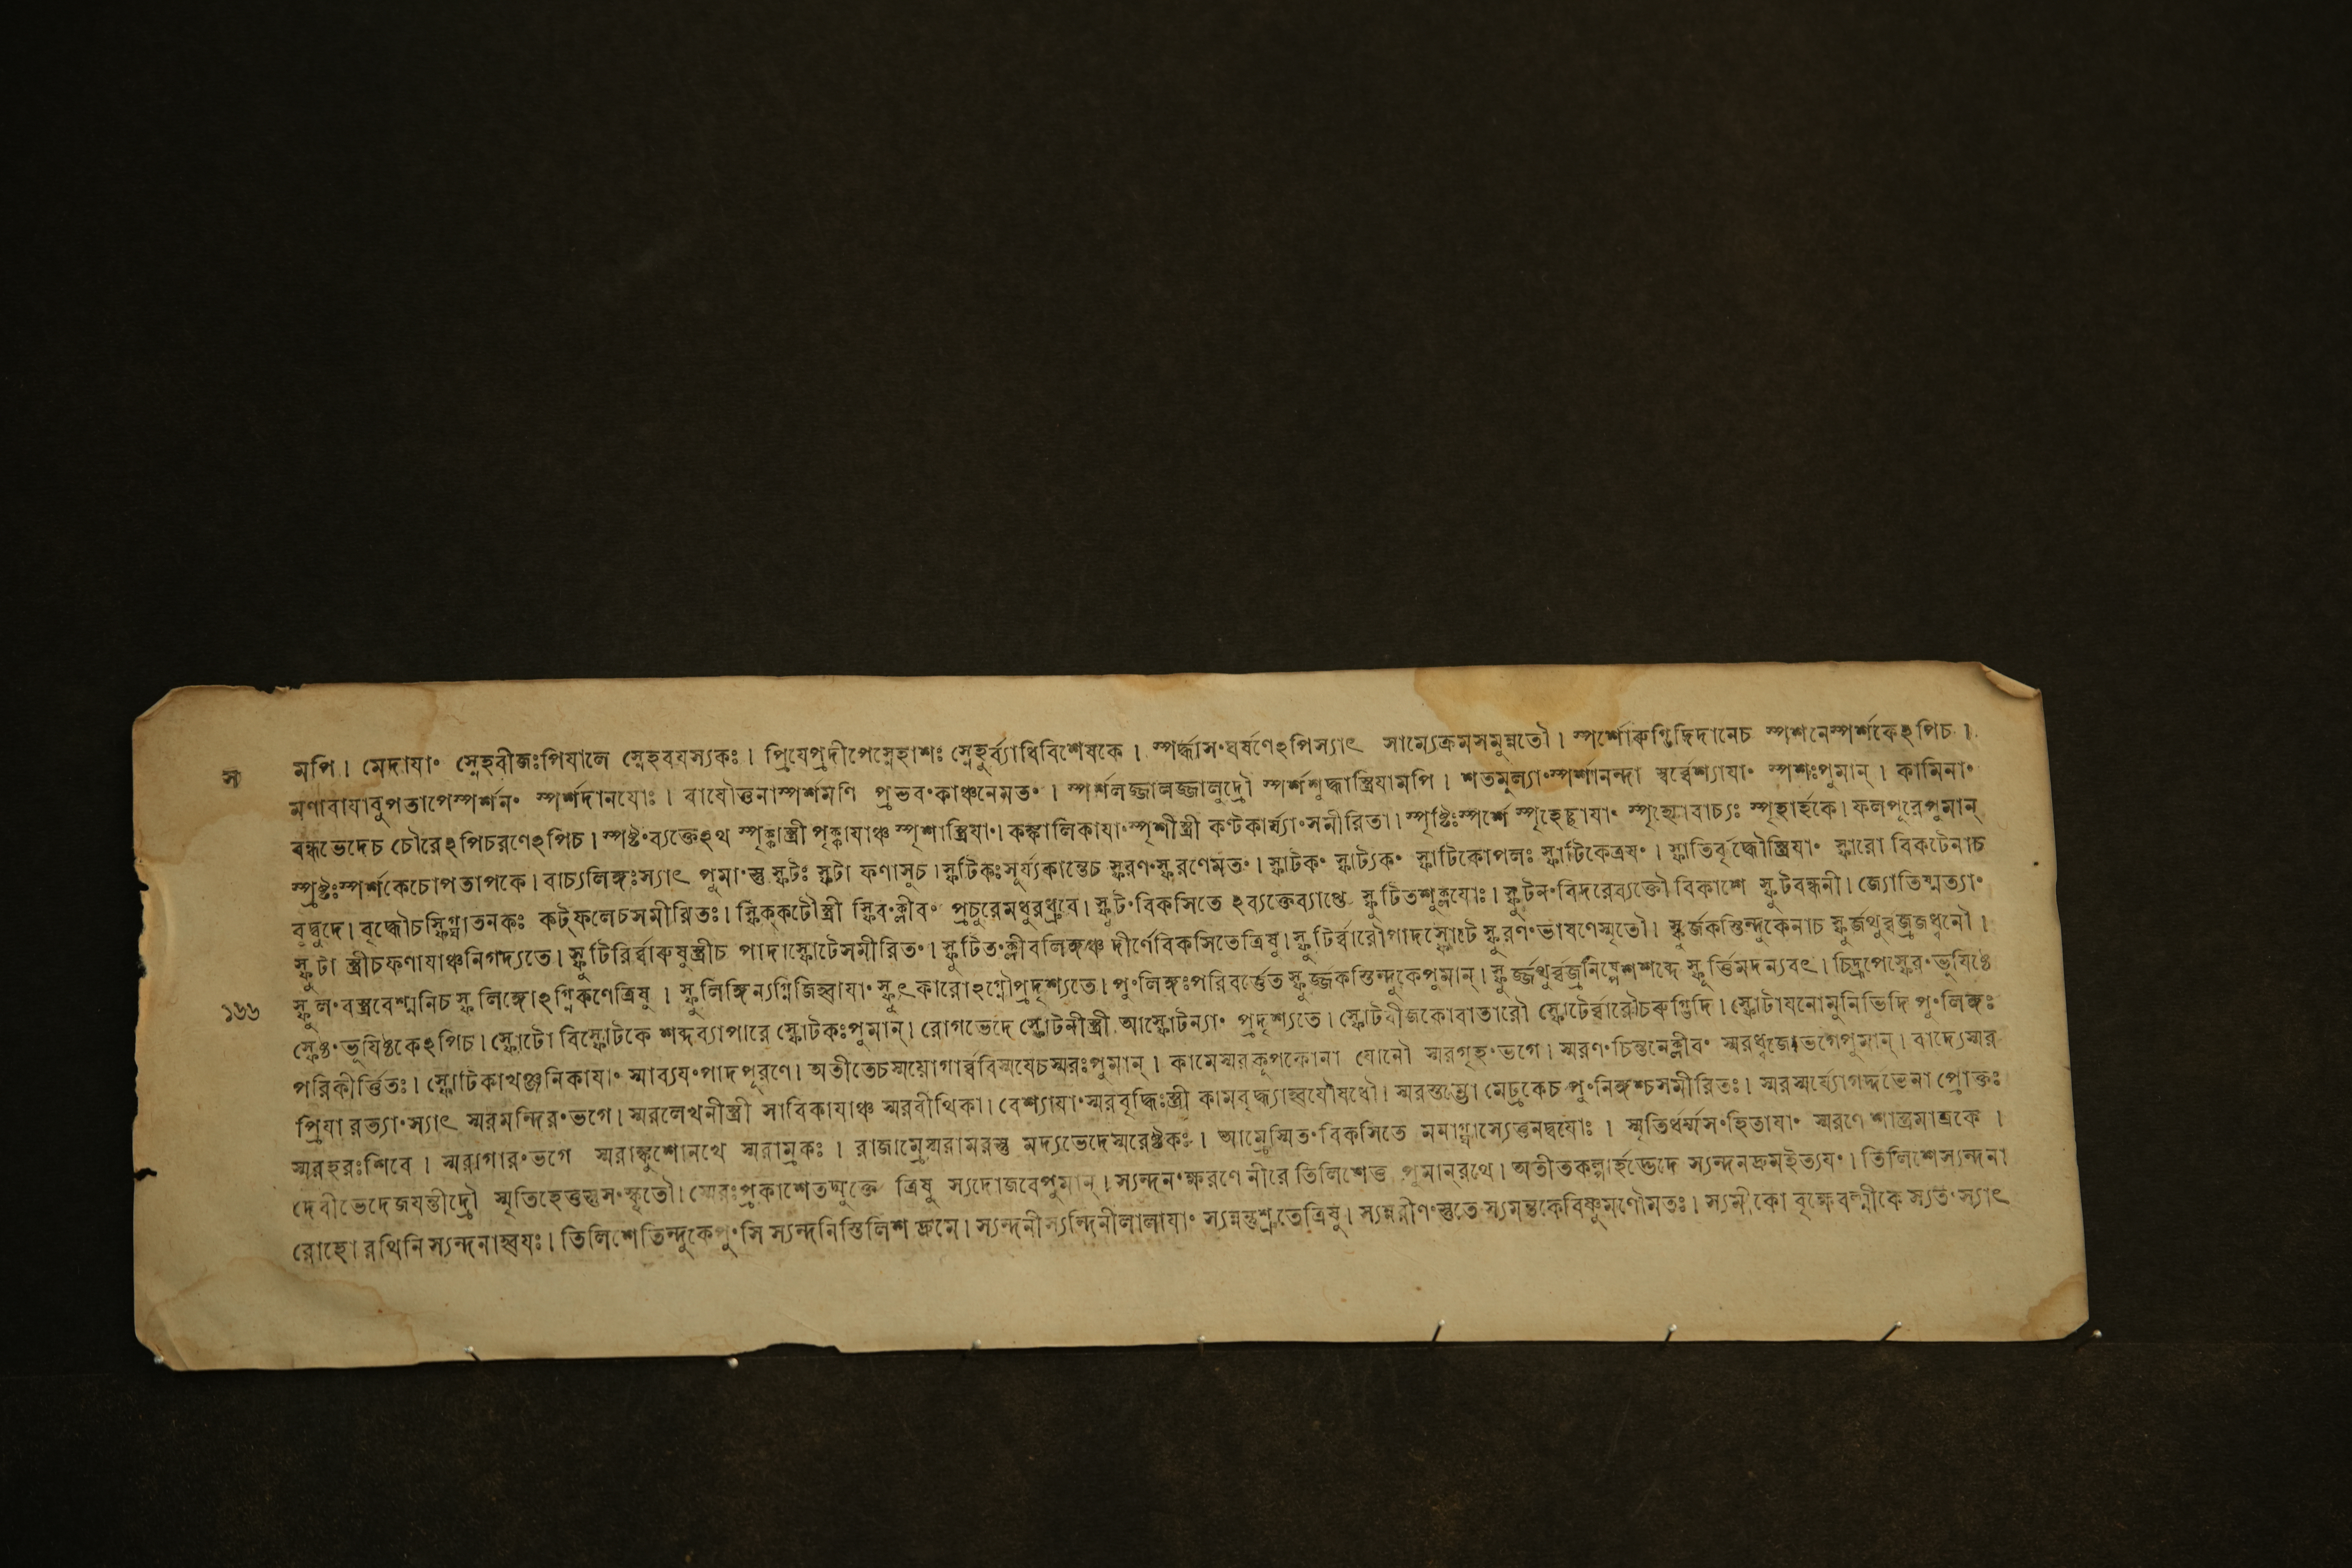 স
মপি। মেদাযা॰ স্নেহবীজঃপিযালে স্নেহবযস্যকঃ। প্রিযেপ্রদীপেস্নেহাশঃ স্নেহুর্ব্যাধিবিশেষকে। স্পর্দ্ধাস॰ঘর্ষণেঽপিস্যাৎ সাম্যেক্রমসমুন্নতৌ। স্পর্শোৰুগ্বিদ্রিদানেচ স্পশনেস্পর্শকেঽপিচ।
মণাবাযাবুপতাপেস্পর্শন॰ স্পর্শদানযোঃ। বাযৌত্তনাস্পর্শমণি প্রভব॰কাঞ্চনেমত॰। স্পর্শলজ্জালজ্জালুদ্রৌ স্পর্শশুদ্ধাস্ত্রিযামপি। শতমূল্যা॰স্পর্শানন্দা স্বর্ব্বেশ্যাযা॰ স্পশঃপুমান্। কামিনা॰
বন্ধভেদেচ চৌরেঽপিচরণেঽপিচ। স্পষ্ট॰ব্যক্তেঽথ স্পৃক্কাস্ত্রী পৃক্কাযাঞ্চ স্পৃশাস্ত্রিযা॰। কঙ্কালিকাযা॰স্পৃশীস্ত্রী কণ্টকার্য্যা॰সমীরিতা। স্পৃষ্টিঃস্পর্শে স্পৃহেচ্ছাযা॰ স্পৃহ্যোবাচ্যঃ স্পৃহার্হকে। ফলপূরেপুমান্
স্প্রষ্টঃস্পর্শকেচোপতাপকে। বাচ্যলিঙ্গঃস্যাৎ পুমা॰স্তু স্ফটঃ স্ফটা ফণাসুচ। স্ফটিকঃসূর্য্যকান্তেচ স্ফরণ॰স্ফুরণেমত॰। স্ফাটক॰ স্ফাট্যক॰ স্ফাটিকোপলঃ স্ফাটিকেত্রয॰। স্ফাতিবৃদ্ধৌস্ত্রিযা॰ স্ফারো বিকটেনাচ
বুদ্বুদে। বৃদ্ধৌচস্ফিগ্ঘাতনকঃ কট্ফলেচসমীরিতঃ। স্ফিক্কটৌস্ত্রী স্ফির॰ক্লীব॰ প্রচুরেমধুরধ্রুবে। স্ফুট॰বিকসিতে ঽব্যক্তেব্যাপ্তে স্ফুটিতশুক্লযোঃ। স্ফুটন॰বিদরেব্যক্তৌ বিকাশে স্ফুটবন্ধনী। জ্যোতিষ্মত্যা॰
স্ফুটা স্ত্রীচফণাযাঞ্চনিগদ্যতে। স্ফুটিরির্ব্বাৰুষুস্ত্রীচ পাদাস্ফোটেসমীরিত॰। স্ফুটিত॰ক্লীবলিঙ্গঞ্চ দীর্ণেবিকসিতেত্রিষু। স্ফুটির্ব্বারৌপাদস্ফোটে স্ফুরণ॰ভাষণেস্মৃতৌ। স্ফুর্জকস্তিন্দুকেনাচ স্ফুর্জথুর্ব্বজ্রজধ্বনৌ।
১৬৬
স্ফুল॰বস্ত্রবেশ্মনিচ স্ফুলিঙ্গোঽগ্নিকণেত্রিষু। স্ফুলিঙ্গিন্যগ্নিজিহ্বাযা॰ স্ফুৎকারোঽগ্নৌপ্রদৃশ্যতে। পু॰লিঙ্গঃপরিবর্ত্তেত স্ফূর্জ্জকস্তিন্দুকেপুমান্। স্ফূর্জ্জথুর্ব্বজ্রনিষ্পেশশব্দে স্ফূর্ত্তিমদন্যবৎ। চিদ্রূপেস্ফের॰ভূযিষ্ঠে
স্ফেষ্ঠ॰ভূযিষ্ঠকেঽপিচ। স্ফোটো বিস্ফোটকে শব্দব্যাপারে স্ফোটকঃপুমান্। রোগভেদে স্ফোটনীস্ত্রী আস্ফোটন্যা॰ প্রদৃশ্যতে। স্ফোটবীজকোবাতারৌ স্ফোটের্ব্বারৌচৰুগ্ভিদি। স্ফোটাযনোমুনিভিদি পু॰লিঙ্গঃ
পরিকীর্ত্তিতঃ। স্ফোটিকাখঞ্জনিকাযা॰ স্মাব্যয॰পাদপূরণে। অতীতেচস্ময়োগার্ব্ববিস্মযেচস্মরঃপুমান্। কামেস্মরকূপকোনা যোনৌ স্মরগৃহ॰ভগে। স্মরণ॰চিন্তনেক্লীব॰ স্মরধ্বজোভগেপুমান্। বাদ্যেস্মর
প্রিযা রত্যা॰স্যাৎ স্মরমন্দির॰ভগে। স্মরলেখনীস্ত্রী সারিকাযাঞ্চ স্মরবীথিকা। বেশ্যাযা॰স্মরবৃদ্ধিঃস্ত্রী কামবৃদ্ধ্যাহ্বযৌষধৌ। স্মরস্তম্ভো মেঢ্রকেচ পু॰লিঙ্গশ্চসমীরিতঃ। স্মরস্মর্য্যোগর্দ্দভেনা প্রোক্তঃ
স্মরহরঃশিবে। স্মরাগার॰ভগে স্মরাঙ্কুশোনখে স্মরাম্রকঃ। রাজাম্রেস্মরামরস্তু মদ্যভেদেস্মরেষ্টকঃ। আম্রেস্মিত॰বিকসিতে মনাগ্ঘাস্যেত্তনদ্বযোঃ। স্মৃতির্ধর্ম্মস॰হিতাযা॰ স্মরণে শাস্ত্রমাত্রকে।
দেবীভেদেজযন্তীদ্রৌ স্মৃতিহেতুস্তুস॰স্কৃতৌ। স্মেরঃপ্রকাশেতদ্যুক্তে ত্রিষু স্যদোজবেপুমান্। স্যন্দন॰ক্ষরণে নীরে তিলিশেত্ত পুমান্রথে। অতীতকল্পার্হদ্ভেদে স্যন্দনদ্রুমইত্যয॰। তিলিশেস্যন্দনা
রোহো রথিনি স্যন্দনাহ্বযঃ। তিলিশেতিন্দুকেপু॰সি স্যন্দনিস্তিলিশ দ্রুমে। স্যন্দনীস্যন্দিনীলালাযা॰ স্যন্নন্তুশ্রুতেত্রিষু। স্যন্নরীণ॰স্তুতে স্যমন্তকেবিষ্ণুমণৌমতঃ। স্যমীকো বৃক্ষেবল্মীকে স্যত॰স্যাৎ